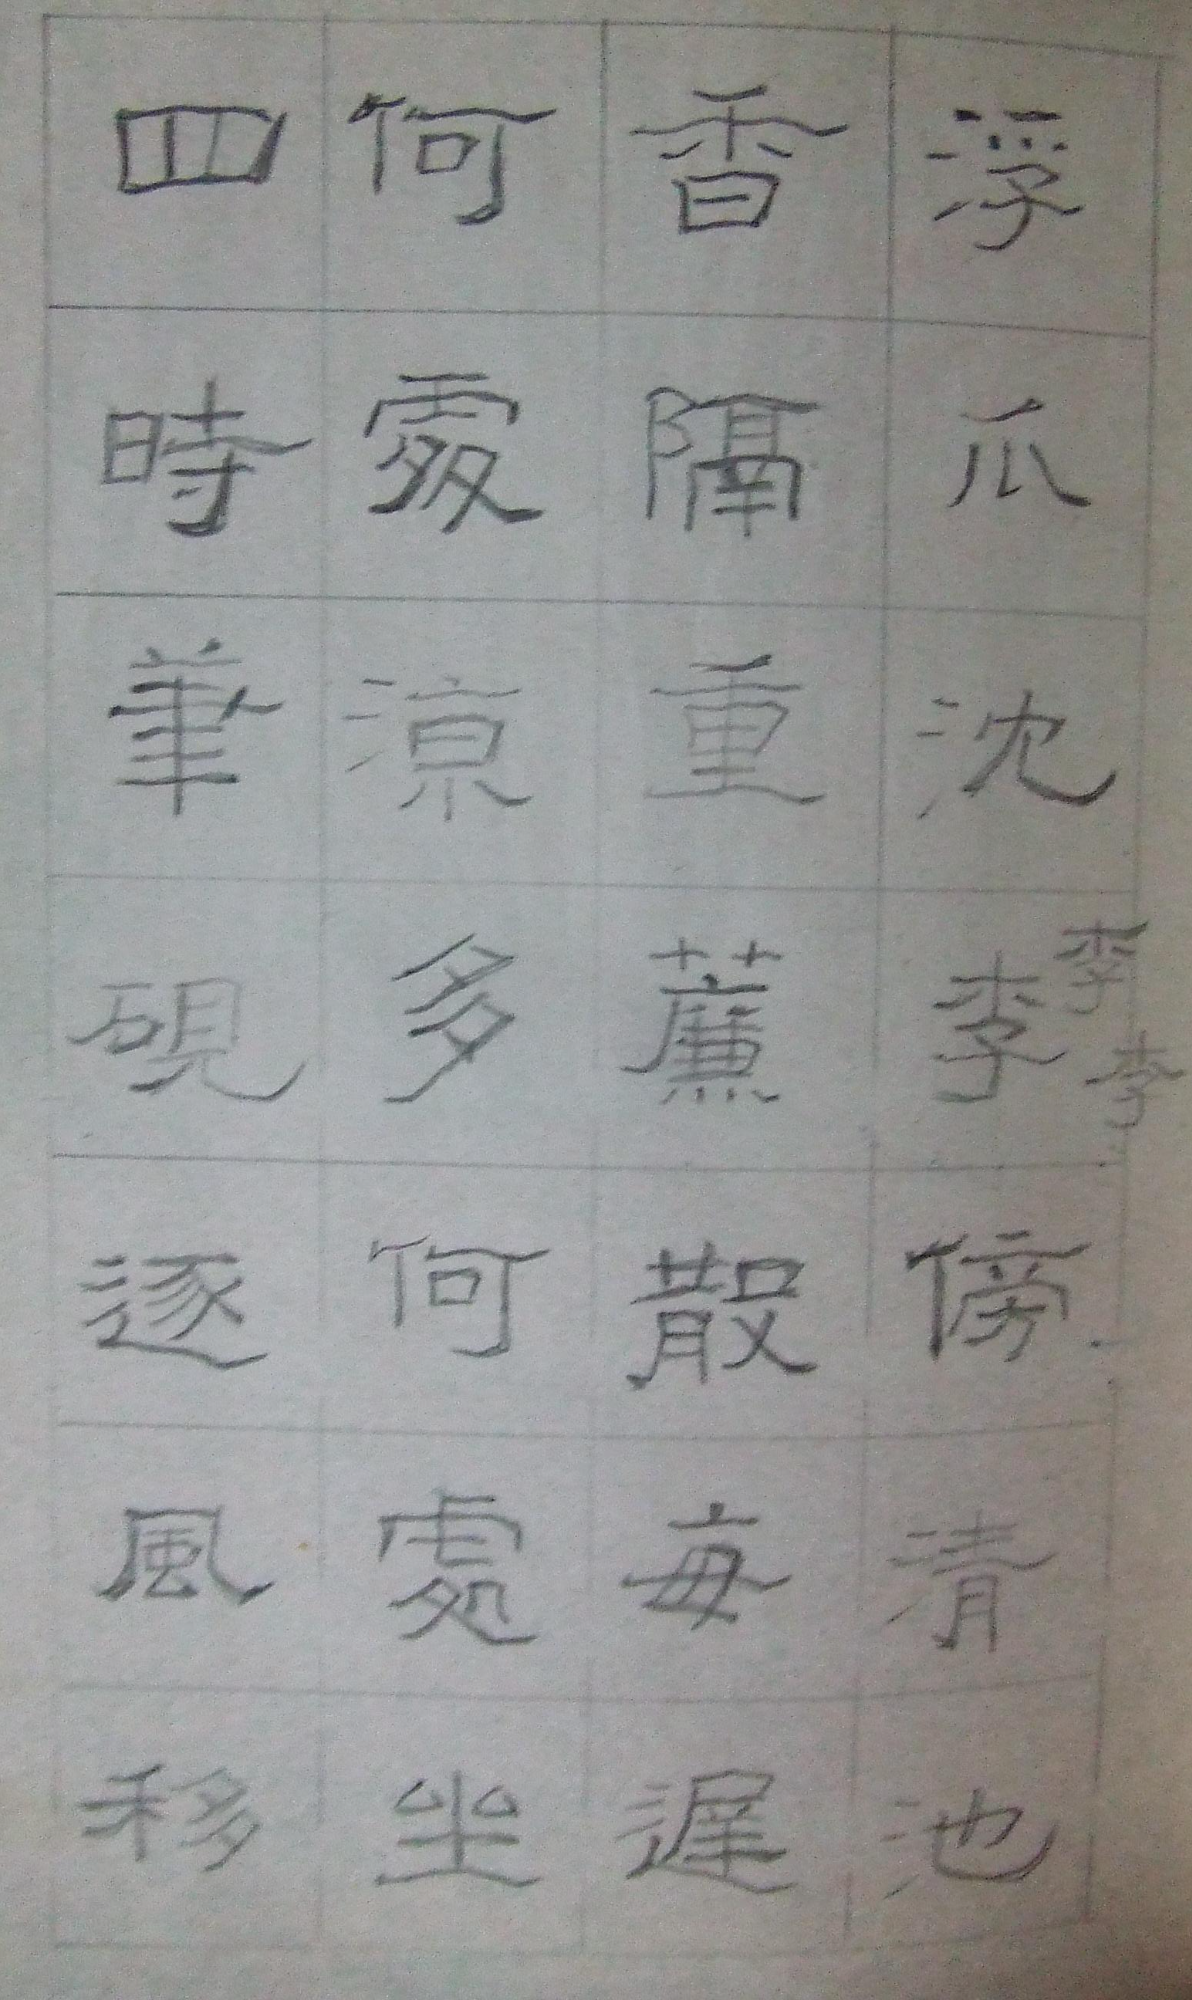 浮瓜沈李傍清池
李
李
香隔重簾散每遲
何處涼多何處坐
四時筆硯逐風移